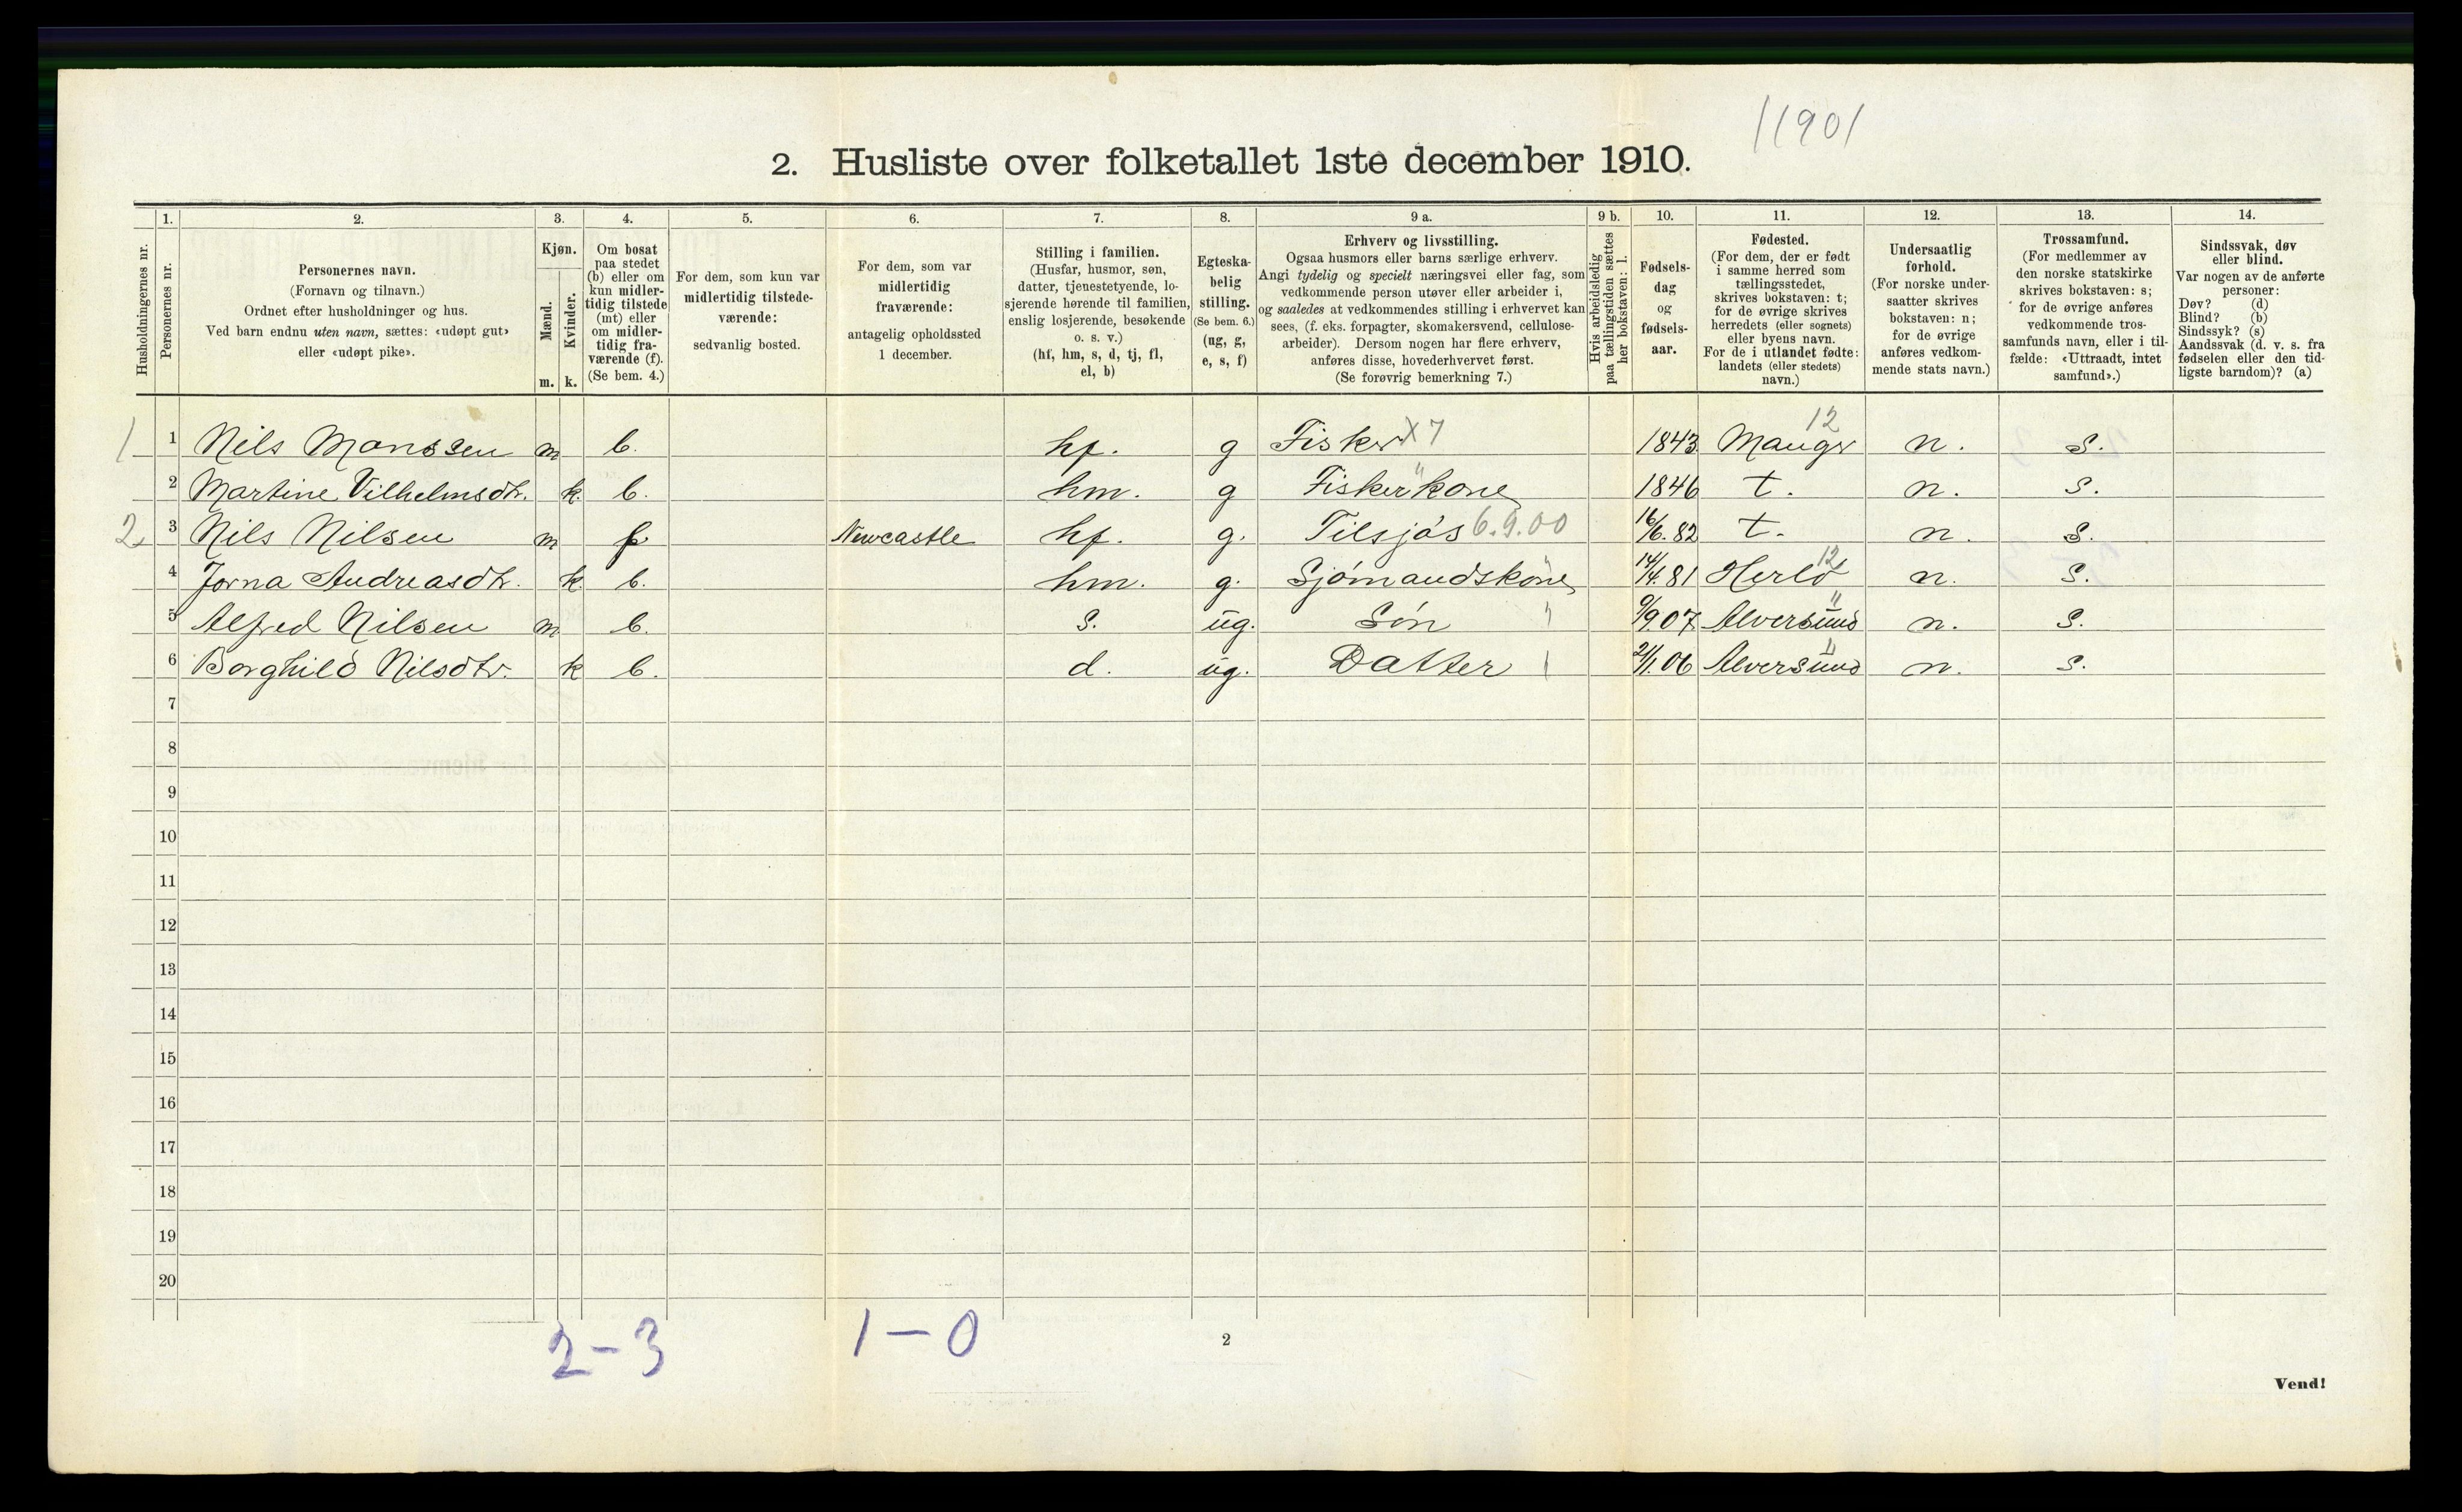 11901
2. Husliste over folketallet 1ste december 1910.
Husholdningernes nr.
1.
Personernes nr.
2.
Personernes navn.
(Fornavn og tilnavn.)
Ordnet efter husholdninger og hus.
Ved barn endnu uten navn, sættes: «udøpt gut»
eller «udøpt pike».
3.
Kjøn.
Mænd.
m.
Kvinder.
k.
4.
Om bosat
paa stedet
(b) eller om
kun midler-
tidig tilstede
(mt) eller
om midler-
tidig fra-
værende (f).
(Se bem. 4.)
5.
For dem, som kun var
midlertidig tilstede-
værende:
sedvanlig bosted.
6.
For dem, som var
midlertidig
fraværende:
antagelig opholdssted
1 december.
7.
Stilling i familien.
(Husfar, husmor, søn,
datter, tjenestetyende, lo-
sjerende hørende til familien,
enslig losjerende, besøkende
o. s. v.)
(hf, hm, s, d, tj, fl,
el, b)
8.
Egteska-
belig
stilling.
(Se bem. 6.)
(ug, g,
e, s, f)
9 a.
Erhverv og livsstilling.
Ogsaa husmors eller barns særlige erhverv.
Angi tydelig og specielt næringsvei eller fag, som
vedkommende person utøver eller arbeider i,
og saaledes at vedkommendes stilling i erhvervet kan
sees, (f. eks. forpagter, skomakersvend, cellulose-
arbeider). Dersom nogen har flere erhverv,
anføres disse, hovederhvervet først.
(Se forøvrig bemerkning 7.)
9 b.
Hvis arbeidsledig
paa tællingstiden sættes
her bokstaven: l.
10.
Fødsels-
dag
og
fødsels-
aar.
11.
Fødested.
(For dem, der er født
i samme herred som
tællingsstedet,
skrives bokstaven: t;
for de øvrige skrives
herredets (eller sognets)
eller byens navn.
For de i utlandet fødte:
landets (eller stedets)
navn.)
12.
Undersaatlig
forhold.
(For norske under-
saatter skrives
bokstaven: n;
for de øvrige
anføres vedkom-
mende stats navn.)
13.
Trossamfund.
(For medlemmer av
den norske statskirke
skrives bokstaven: s;
for de øvrige anføres
vedkommende tros-
samfunds navn, eller i til-
fælde: «Uttraadt, intet
samfund».)
14.
Sindssvak, døv
eller blind.
Var nogen av de anførte
personer:
Døv? (d)
Blind? (b)
Sindssyk? (s)
Aandssvak (d. v. s. fra
fødselen eller den tid-
ligste barndom)? (a)
1 1 Nils Monssen m b. hf. g Fisker X 7 1843 Manger 12 n. s.
2 Martine Vilhelmsdtr. k b. hm. g Fiskerkone " 1846 t. n. s.
2 3 Nils Nilsen m f Newcastle hf. g. Tilsjøs 6.9.00 16/6.82 t. n. s.
4 Jorna Andreasdtr. k b. hm. g. Sjømandskone " 14/4.81 Herlø 12 n. s.
5 Alfred Nilsen m b. s. ug. Søn " 9/9.07 Alversund " n. s.
6 Borghild Nilsdtr. k b. d. ug. Datter " 2/1.06 Alversund " n. s.
7
8
9
10
11
12
13
14
15
16
17
18
19
20
2-3 1-0
2
Vend!